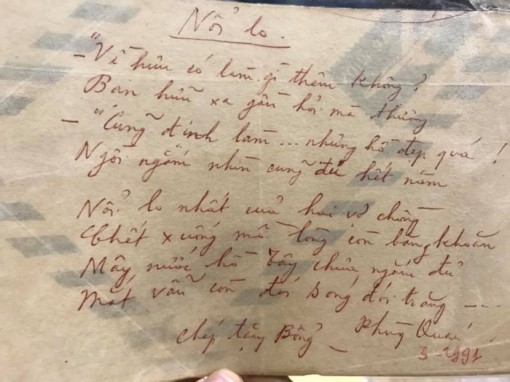 Nỗi lo.
– "Về hưu có làm gì thêm không?
Bạn hữu xa gần hỏi mà thương
– "Cũng định làm... nhưng hồ đẹp quá!
Ngồi ngắm nhìn cũng đủ hết năm
Nỗi lo nhất của hai vợ chồng
Chết xuống mồ lòng còn bâng khuâng
Mây nước hồ Tây chưa ngắm đủ
Mắt vẫn còn đói sóng đói trăng ----
Chép tặng Bổng – Phùng Quán
3-1991